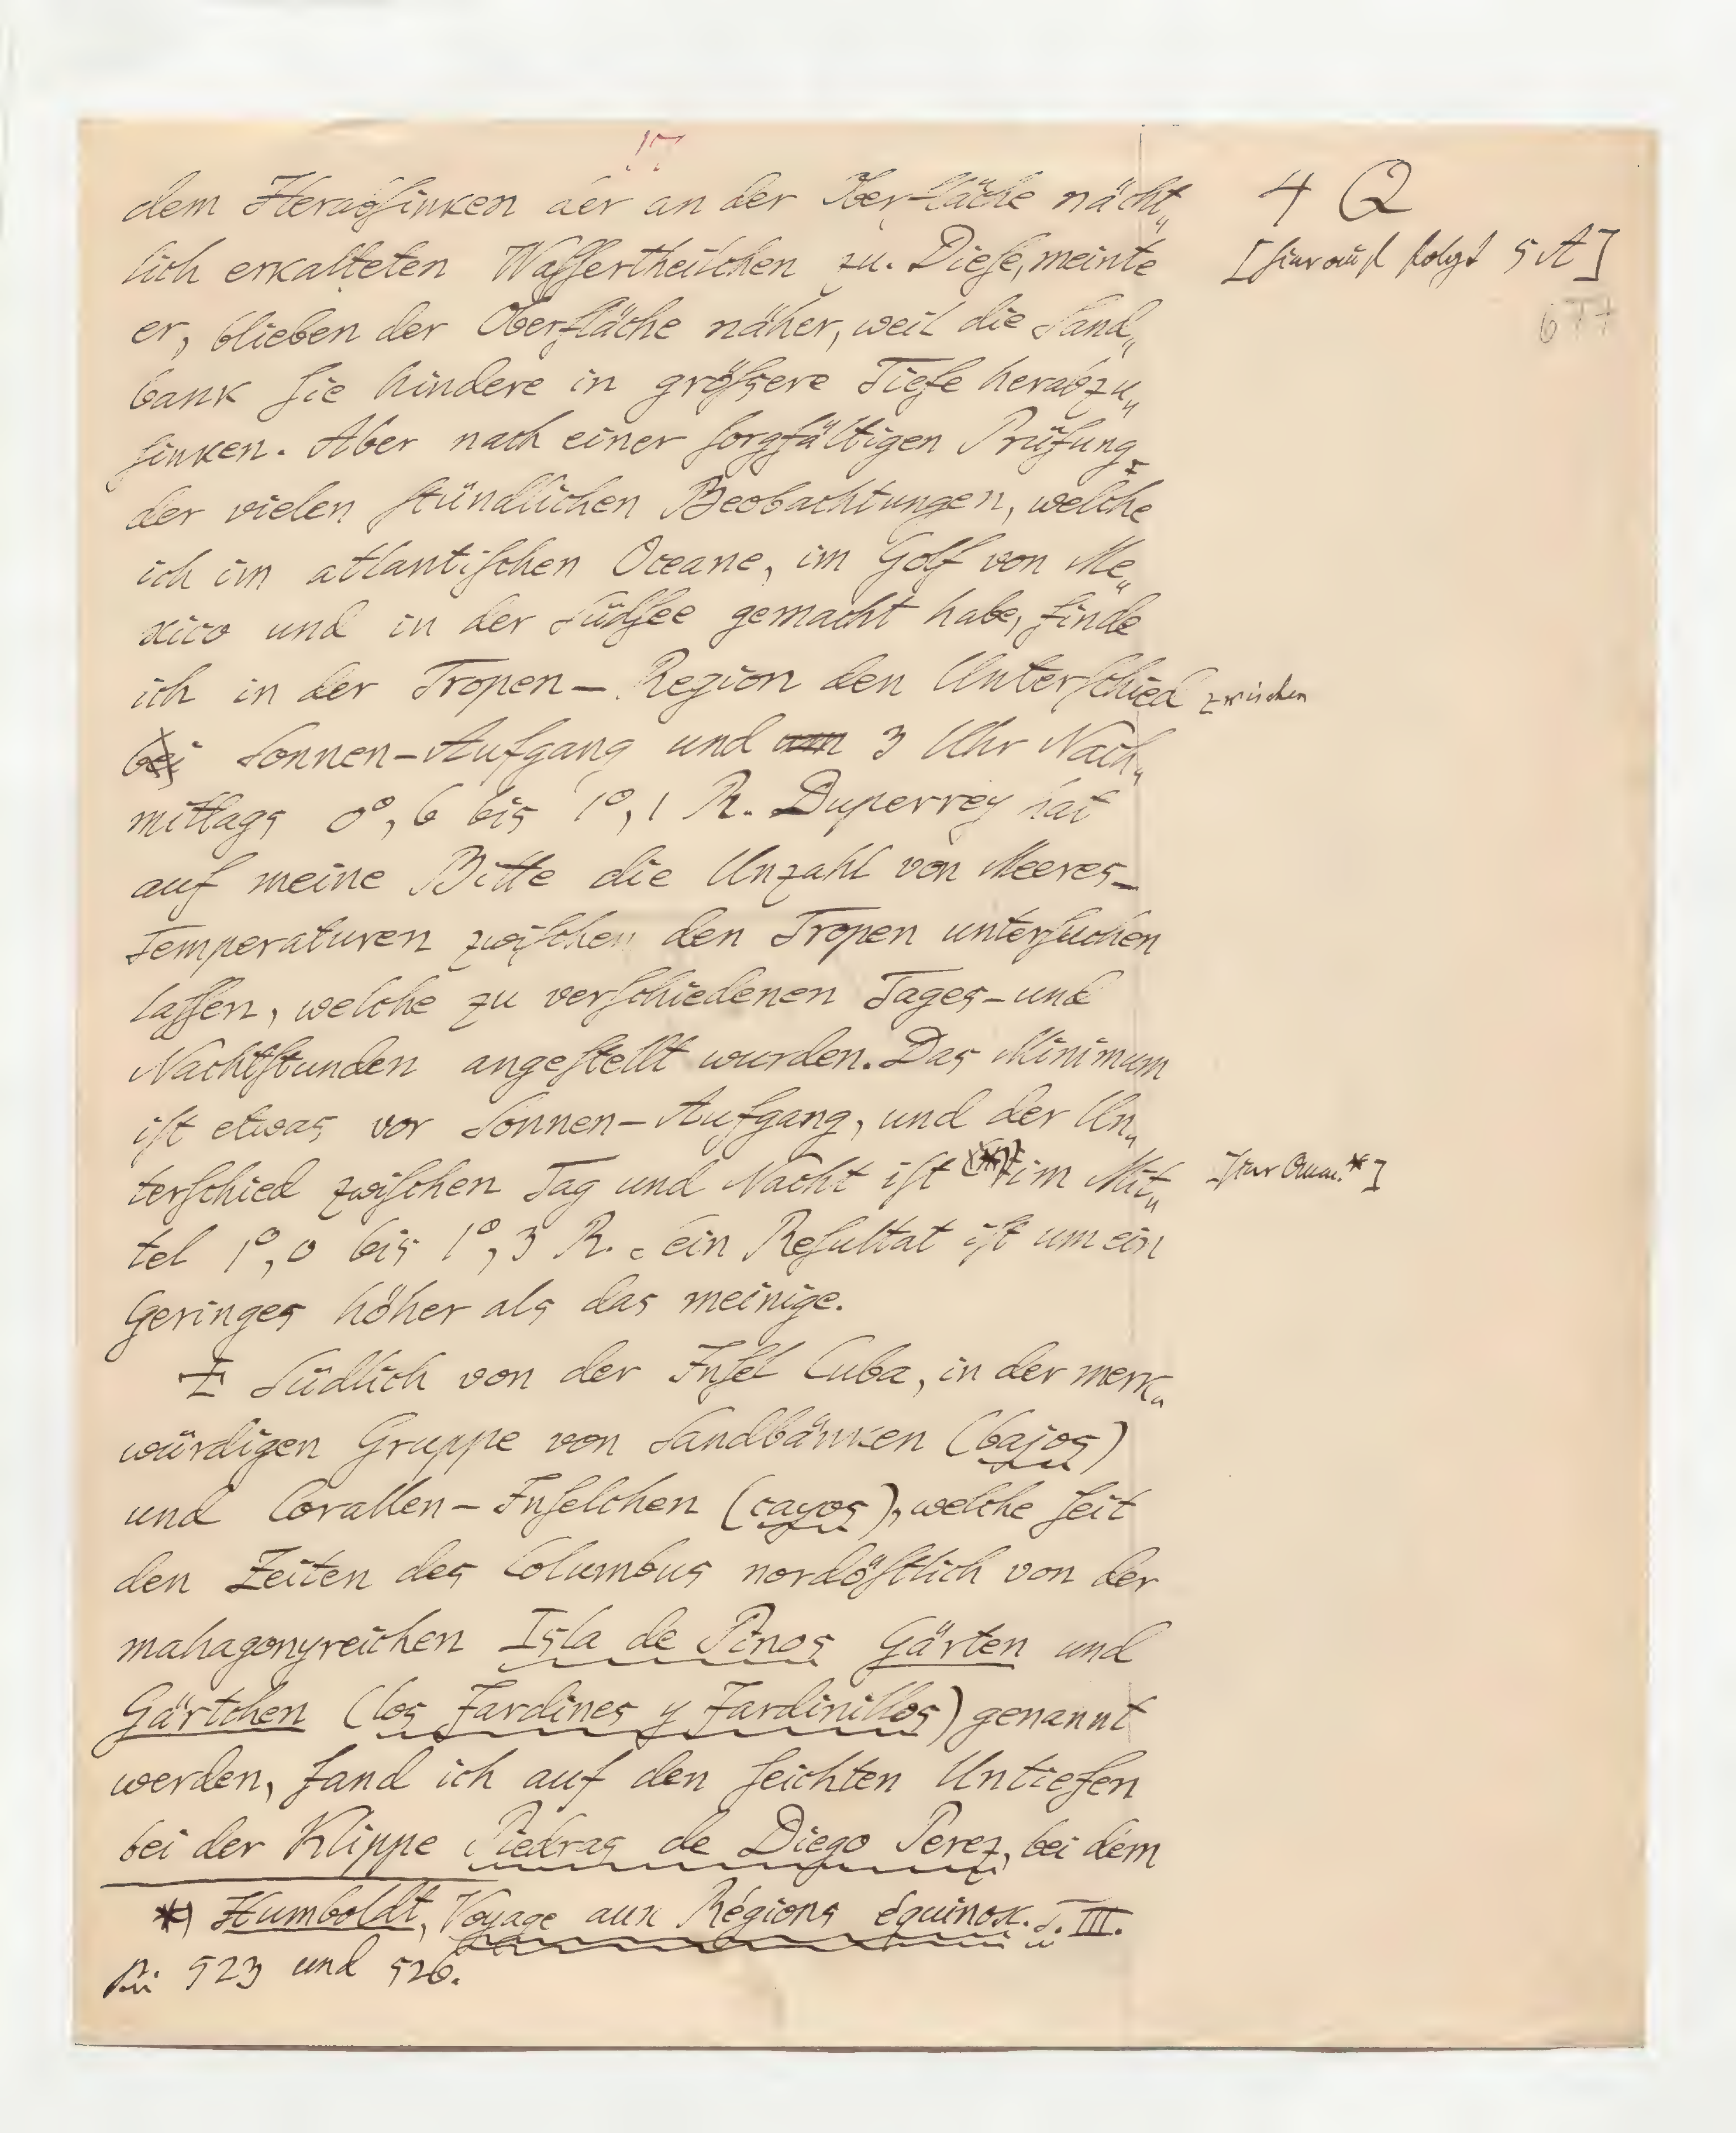 15
4 Q
[hierauf folgt 5 A]
dem Herabsinken der an der Oberfläche nächt„
lich erkalteten Wassertheilchen zu. Diese, meinte
er, blieben der Oberfläche näher, weil die Sand„
bank sie hindere in größere Tiefe herabzu„
sinken. Aber nach einer sorgfältigen Prüfung
der vielen stündlichen Beobachtungen, welche
ich im atlantischen Oceane, im Golf von Me„
xico und in der Südsee gemacht habe, finde
ich in der Tropen-Region den Unterschied zwischen
bei Sonnen-Aufgang und um 3 Uhr Nach„
mittags 0°,6 bis 1°,1 R. Duperrey hat
auf meine Bitte die Unzahl von Meeres-
Temperaturen zwischen den Tropen untersuchen
lassen, welche zu verschiedenen Tages- und
Nachtstunden angestellt wurden. Das Minimum
ist etwas vor Sonnen-Aufgang, und der Un„
terschied zwischen Tag und Nacht ist *) im Mit„
[hier Anm. *]
tel 1°,0 bis 1°,3 R. Sein Resultat ist um ein
Geringes höher als das meinige.
Südlich von der Insel Cuba, in der merk„
würdigen Gruppe von Sandbänken (bajos)
und Corallen-Inselchen (cayos), welche seit
den Zeiten des Columbus nordöstlich von der
mahagonyreichen Isla de Pinos Gärten und
Gärtchen (los Jardines y Jardinillos) genannt
werden, fand ich auf den seichten Untiefen
bei der Klippe Piedras de Diego Perez, bei dem
*) Humboldt, Voyage aux Régions équinox. T. III.
p. 523 und 526.